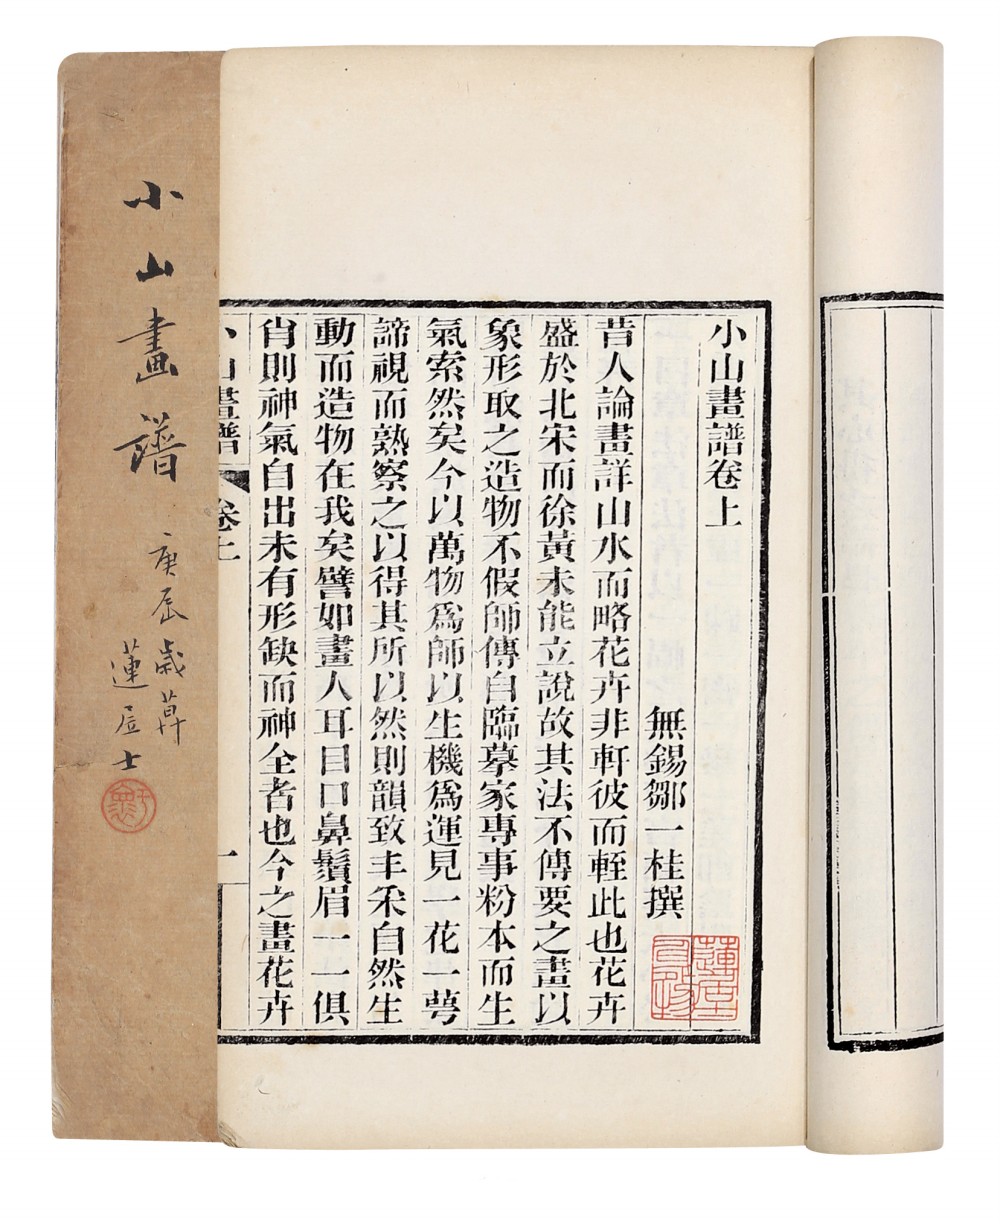 小山畫譜卷上
無錫鄒一桂撰
昔人論畫詳山水而略花卉非軒彼而輊此也花卉
盛於北宋而徐黃未能立說故其法不傳要之畫以
象形取之造物不假師傳自臨摹家專事粉本而生
氣索然矣今以萬物爲師以生機爲運見一花一萼
諦視而熟察之以得其所以然則韻致丰釆自然生
動而造物在我矣譬如畫人耳目口鼻鬚眉一一俱
肖則神氣自出未有形缺而神全者也今之畫花卉
小山畫譜 卷上 一
小山畫譜
庚辰歲
蓮居士